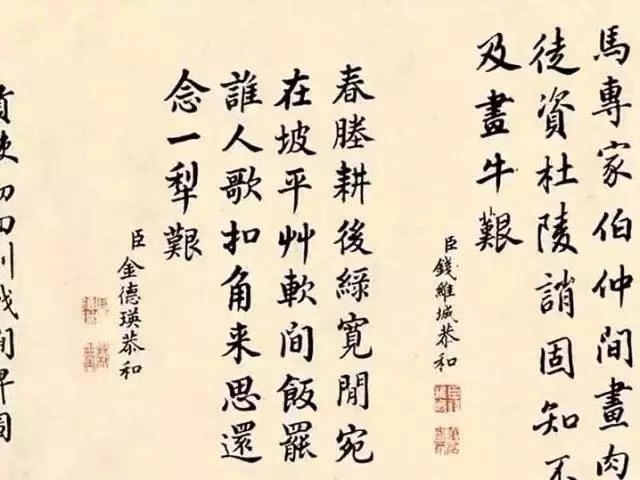 馬專家伯仲間畫肉
徒資杜陵誚固知不
及畫牛艱
臣錢維城恭和
春塍耕後綠寬閒宛
在坡平艸軟間飯罷
誰人歌扣角来思還
念一犁艱
臣金德瑛恭和